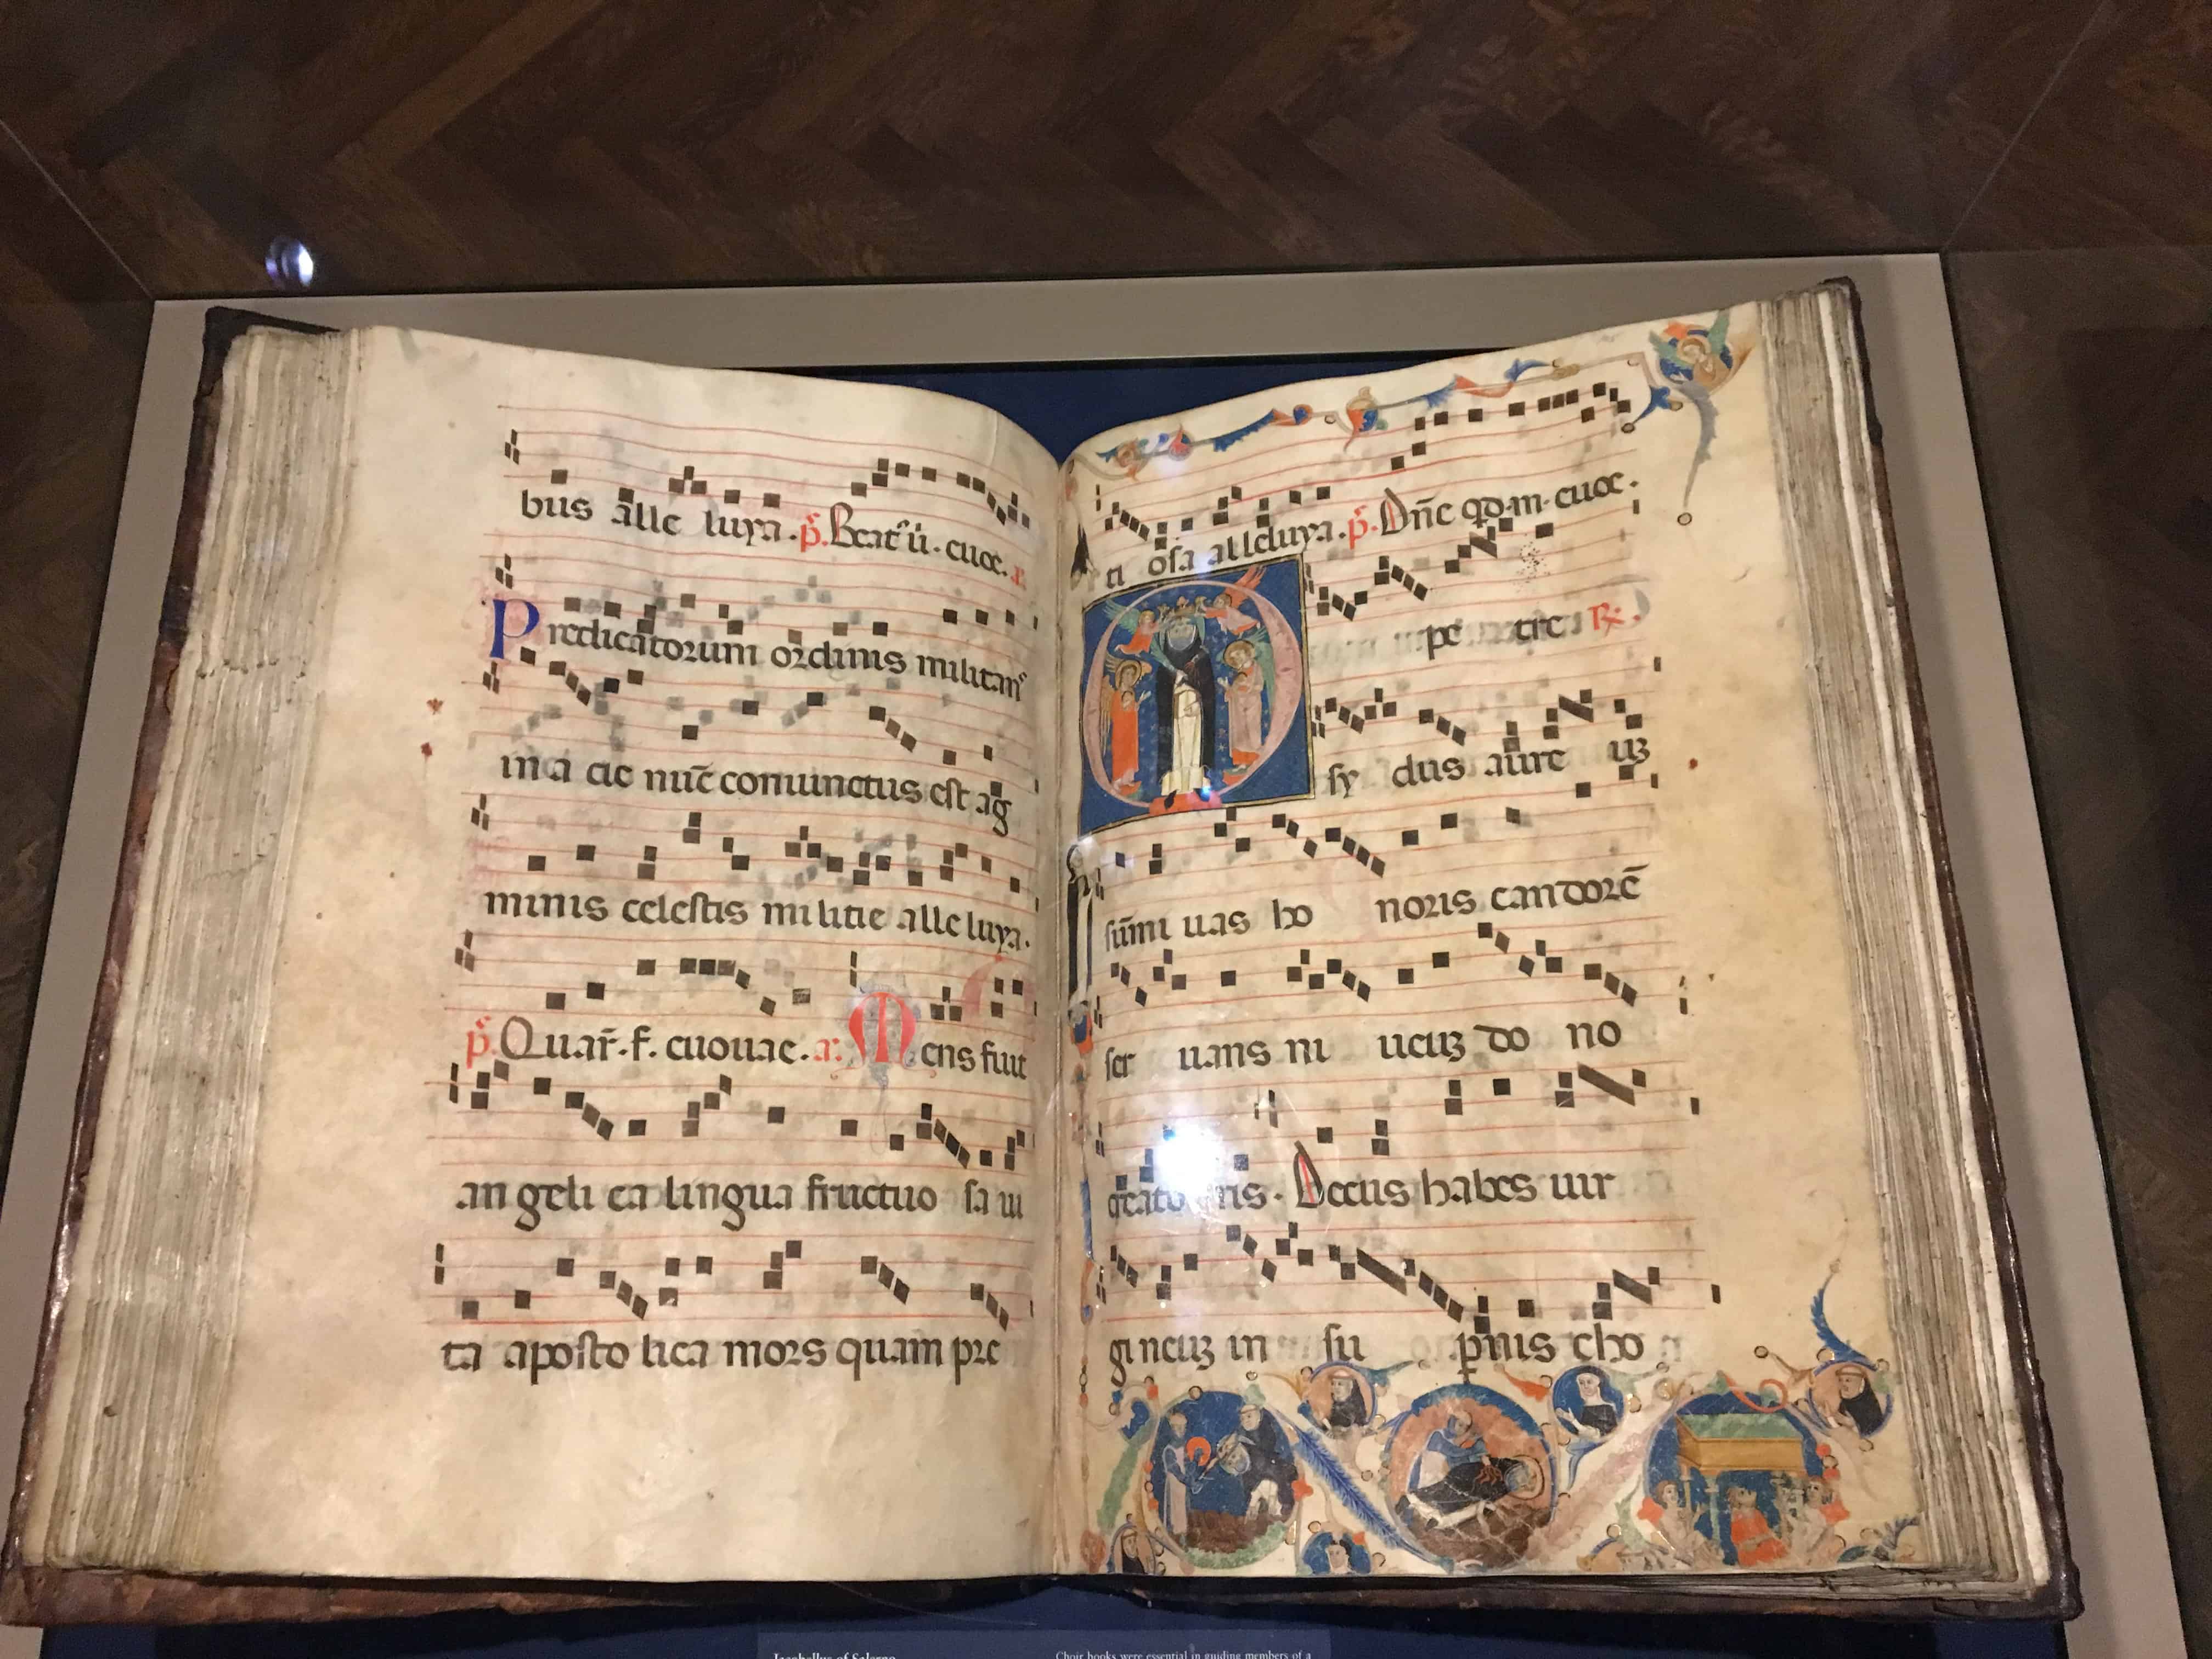 bus alle luya. p̄s. Beat᾽ ui. euoe. a.
Predicatorum ordinis militans
in a cie nūc coniunctus est ag
minis celestis militie alle luya.
p̄s. Quar̄. f. euouae. a. Mens fuit
an geli ca lingua fructuo sa ui
ta aposto lica mors quam pre
ti osa alleluya. p̄s. Dn̄e qd. m. euoe.
pe tre R.
sy dus aure uꝫ
sūmi uas ho noris candorē
ser uans ni ueuꝫ do no
Decus habes uir
gi neuꝫ in su p̄nis cho
Jacobellus of Salerno
Choir books were essential in guiding members of a